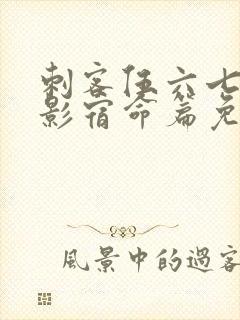 刺客伍六七
影宿命篇免
風景中的過客